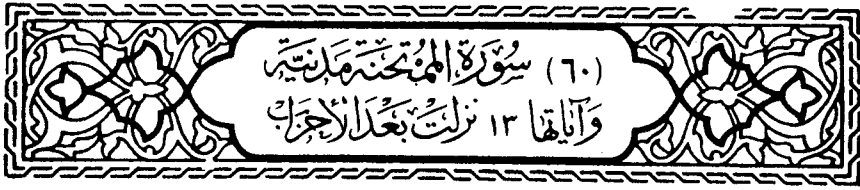 (٦٠) سُورَةُ الْمُمْتَحَنَةِ مَدَنِيَّة
وَآيَاتُهَا ١٣ نَزَلَتْ بَعْدَ الْأَحْزَابِ